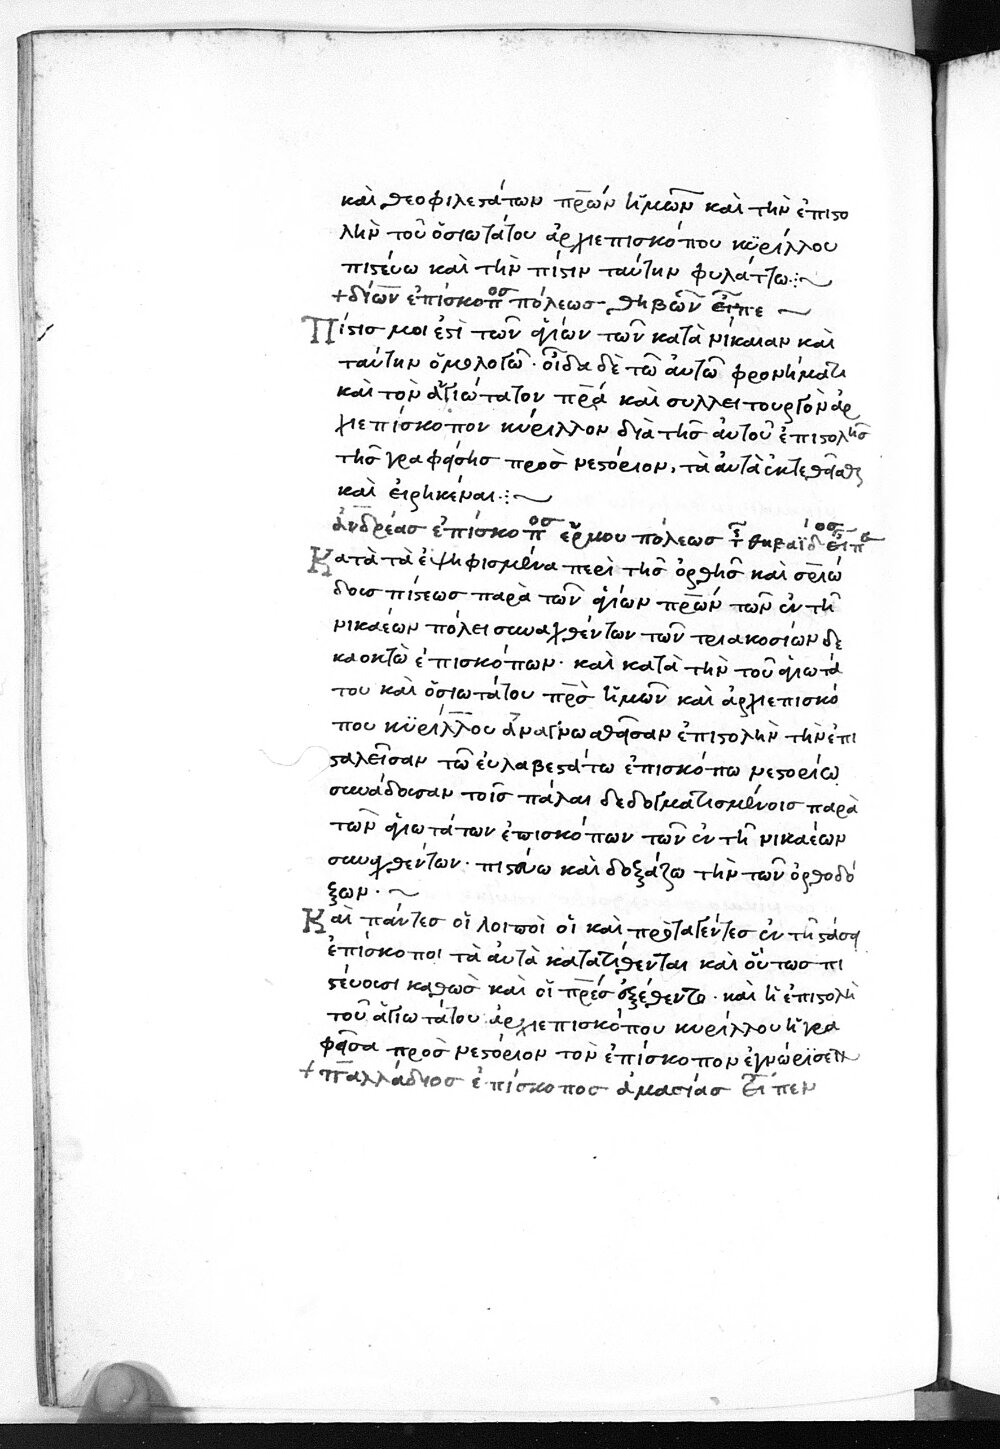 καὶ θεοφιλεστάτων πρων ἡμῶν καὶ τὴν ἐπιστο
λὴν τοῦ ὁσιωτάτου ἀρχιεπισκόπου κϋρίλλου
πιστεύω καὶ τὴν πίστιν ταύτην φυλάττω
+ δίων ἐπίσκοπος πόλεως θηβῶν εἶπε
Πίστις μοι ἐστὶ τῶν ἁγίων τῶν κατὰ νίκαιαν καὶ
ταύτην ὁμολογῶ · οἶδα δὲ τῶ αὐτῶ φρονήματι
καὶ τὸν ἁγιώτατον πρα καὶ συλλειτουργὸν ἀρ
χιεπίσκοπον κύριλλον διὰ τῆς αὐτοῦ ἐπιστολῆς
τῆς γραφείσης πρὸς νεστόριον, τὰ αὐτὰ ἐκτεθεῖσθαι
καὶ εἰρηκέναι
ἀνδρέας ἐπίσκοπος ἑρμου πόλεως τ θηβαΐδος εἶπεν
Κατὰ τὰ ἐψηφισμένα περὶ τῆς ὀρθῆς καὶ σριώ
δους πίστεως παρὰ τῶν ἁγίων πρων τῶν ἐν τῆ
νικαέων πόλει συναχθέντων τῶν τριακοσίων δε
καοκτὼ ἐπισκόπων · καὶ κατὰ τὴν τοῦ ἁγιωτά
του καὶ ὁσιωτάτου πρς ἡμῶν καὶ ἀρχιεπισκό
που κϋρίλλου ἀναγνωσθεῖσαν ἐπιστολὴν τὴν ἐπι
σταλεῖσαν τῶ εὐλαβεστάτω ἐπισκόπω νεστορίω
συνάδουσαν τοῖς πάλαι δεδογματισμένοις παρὰ
τῶν ἁγιωτάτων ἐπισκόπων τῶν ἐν τῆ νικαέων
συναχθέντων · πιστεύω καὶ δοξάζω τὴν τῶν ὀρθοδό
ξων ·
Καὶ πάντες οἱ λοιποὶ οἱ καὶ προταγέντες ἐν τῆ τάξει
ἐπίσκοποι τὰ αὐτὰ κατατίθενται καὶ οὕτως πι
στεύουσι καθὼς καὶ οἱ πρες ἐξέθεντο · καὶ ἡ ἐπιστολὴ
τοῦ ἁγιωτάτου ἀρχιεπισκόπου κυρίλλου ἡ γρα
φεῖσα πρὸς νεστόριον τὸν ἐπίσκοπον ἐγνώρισεν
+ παλλάδιος ἐπίσκοπος ἀμασίας εἶπεν